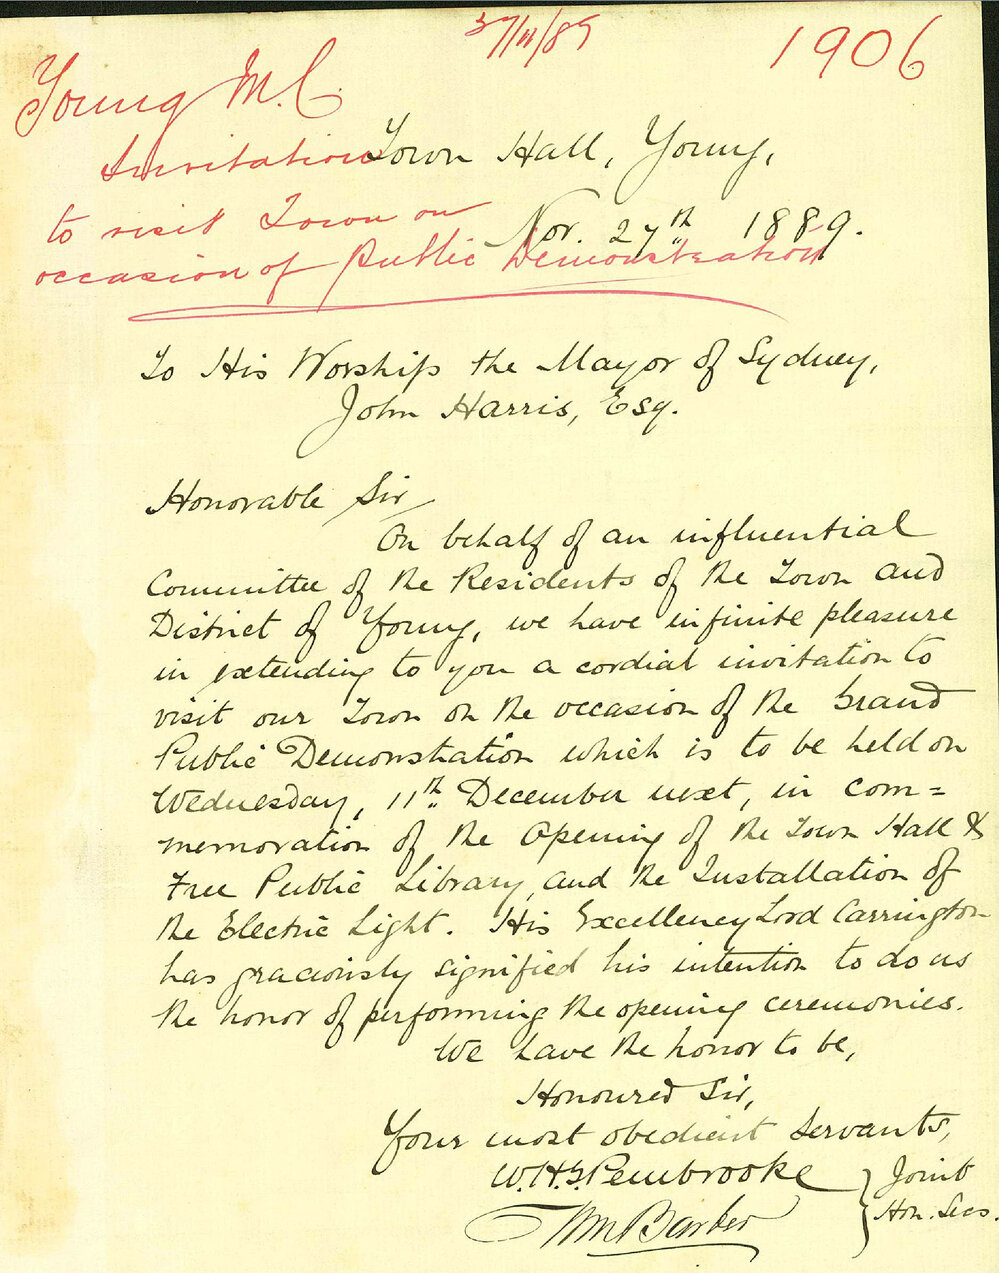 27/11/89
1906
Young M.C.
Invitation
to visit Town on
occasion of Public Demonstration
Town Hall, Young,
Nov. 27th 1889.
To His Worship the Mayor of Sydney,
John Harris, Esq.
Honorable Sir
On behalf of an influential
Committee of the Residents of the Town and
District of Young, we have infinite pleasure
in extending to you a cordial invitation to
visit our Town on the occasion of the Grand
Public Demonstration which is to be held on
Wednesday, 11th December next, in com=
memoration of the Opening of the Town Hall &
Free Public Library, and the Installation of
the Electric Light. His Excellency Lord Carrington
has graciously signified his intention to do us
the honor of performing the opening ceremonies.
We have the honor to be,
Honoured Sir,
Your most obedient Servants,
W.H.G. Pembrooke
Wm Barber
Joint
Hon. Secs.